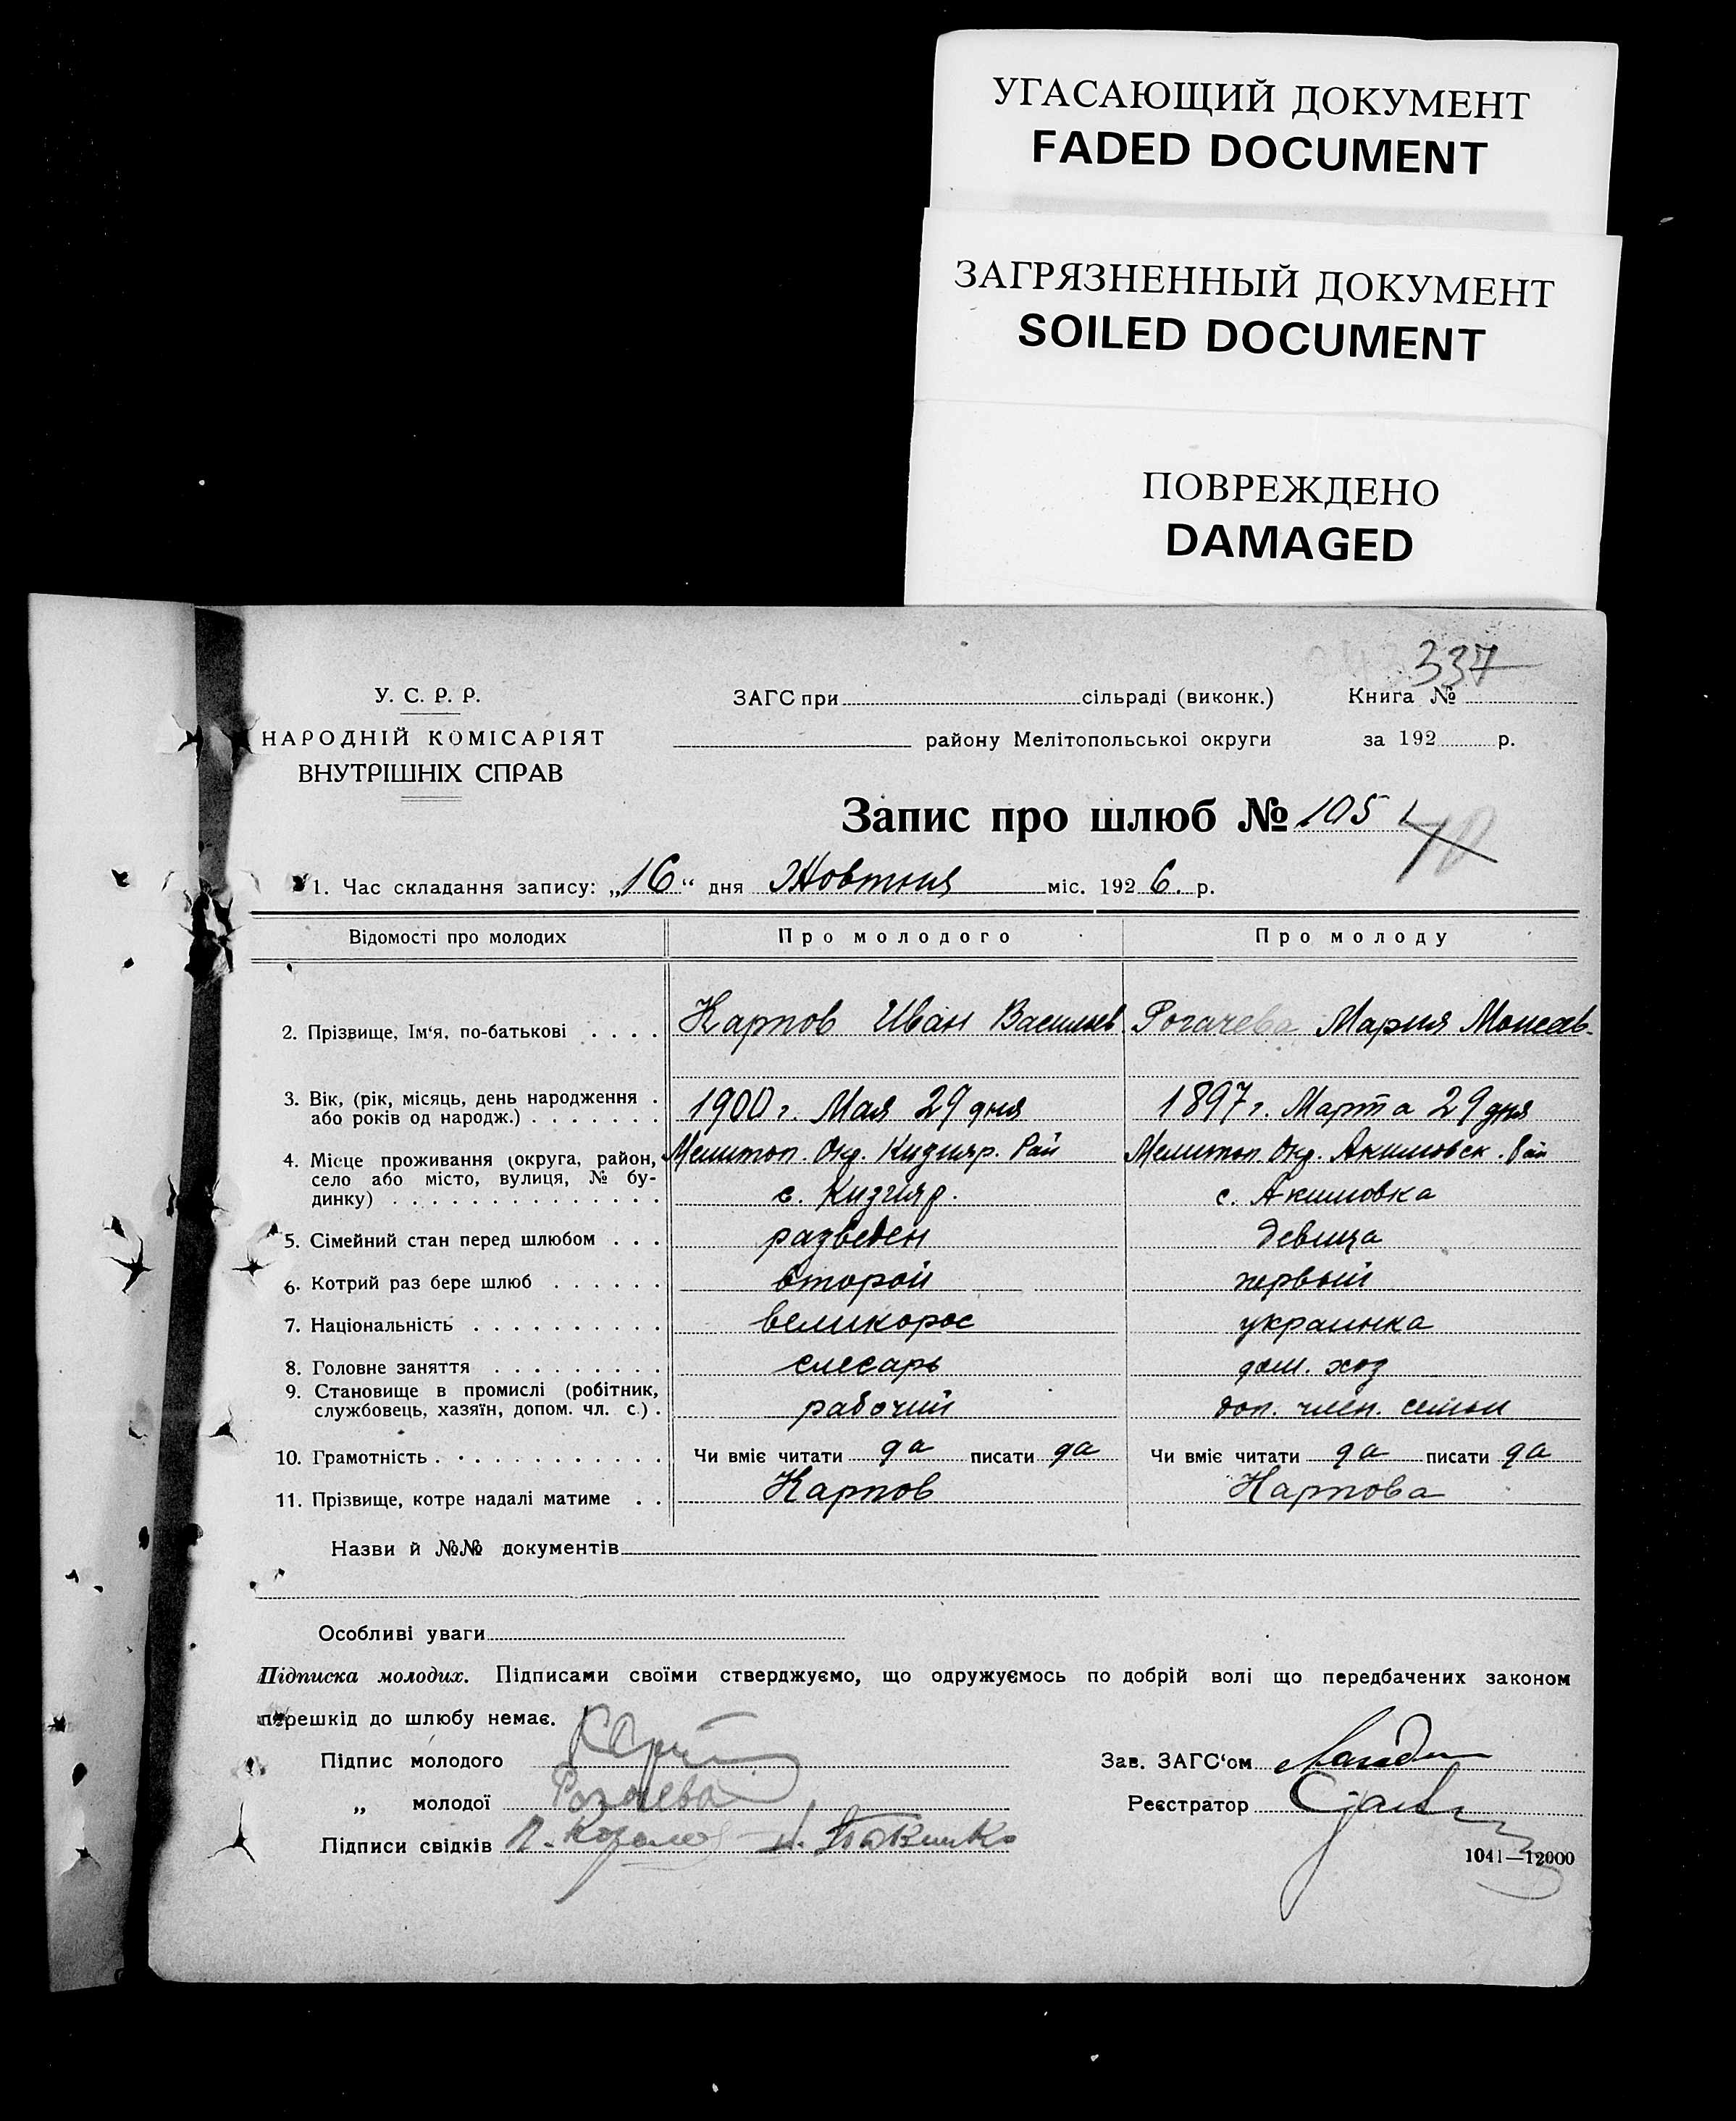 УГАСАЮЩИЙ ДОКУМЕНТ
FADED DOCUMENT
ЗАГРЯЗНЕННЫЙ ДОКУМЕНТ
SOILED DOCUMENT
ПОВРЕЖДЕНО
DAMAGED
337
У. С. Р. Р.
ЗАГС при сільраді (виконк.) Книга №
НАРОДНІЙ КОМІСАРІЯТ
району Мелітопольської округи за 192 р.
ВНУТРІШНІХ СПРАВ
Запис про шлюб № 105
1. Час складання запису: „16“ дня Жовтня міс. 1926. р.
Відомості про молодих Про молодого Про молоду
2. Прізвище, Ім‘я, по-батькові . . . . Карпов Иван Васильев Рогачева Мария
3. Вік, (рік, місяць, день народження . або років од народж.) . . . . . . . 1900 г. Мая 29 дня 1897 г. Марта 29 дня
4. Місце проживання (округа, район, Мелитоп. Окр. Кизияр. Рай Мелитоп. Окр. Акимовск. Рай
село або місто, вулиця, № бу- с. Кизияр. с. Акимовка
динку) . . . . . . . . . . . . . .
5. Сімейний стан перед шлюбом . . . разведен девица
6. Котрий раз бере шлюб . . . . . . второй первый
7. Національність . . . . . . . . . . великорос украинка
8. Головне заняття . . . . . . . . . слесарь дом. хоз
9. Становище в промислі (робітник, службовець, хазяїн, допом. чл. с.) . рабочий доп. член. семьи
10. Грамотність . . . . . . . . . . . . Чи вміє читати да писати да Чи вміє читати да писати да
11. Прізвище, котре надалі матиме . . Карпов Карпова
Назви й №№ документів
Особливі уваги
Підписка молодих. Підписами своїми стверджуємо, що одружуємось по добрій волі що передбачених законом
перешкід до шлюбу немає.
Підпис молодого Зав. ЗАГС‘ом
„ молодої Реєстратор
Підписи свідків
1041—12000